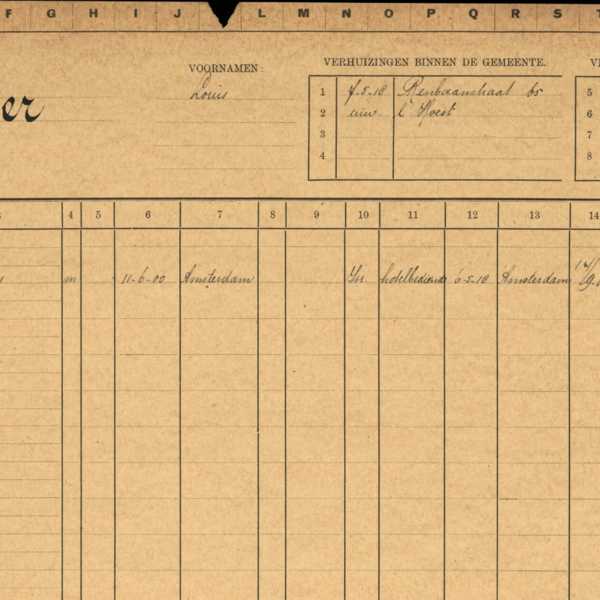 F G H I J L M N O P Q R S T
VOORNAMEN:
Louis
er
VERHUIZINGEN BINNEN DE GEMEENTE.
1 7-5-18 Renbaanstraat 65
2
3
4
5
6
7
8
4 5 6 7 8 9 10 11 12 13 14
m 11-6-00 Amsterdam Isr. hotelbediende 6-5-18 Amsterdam